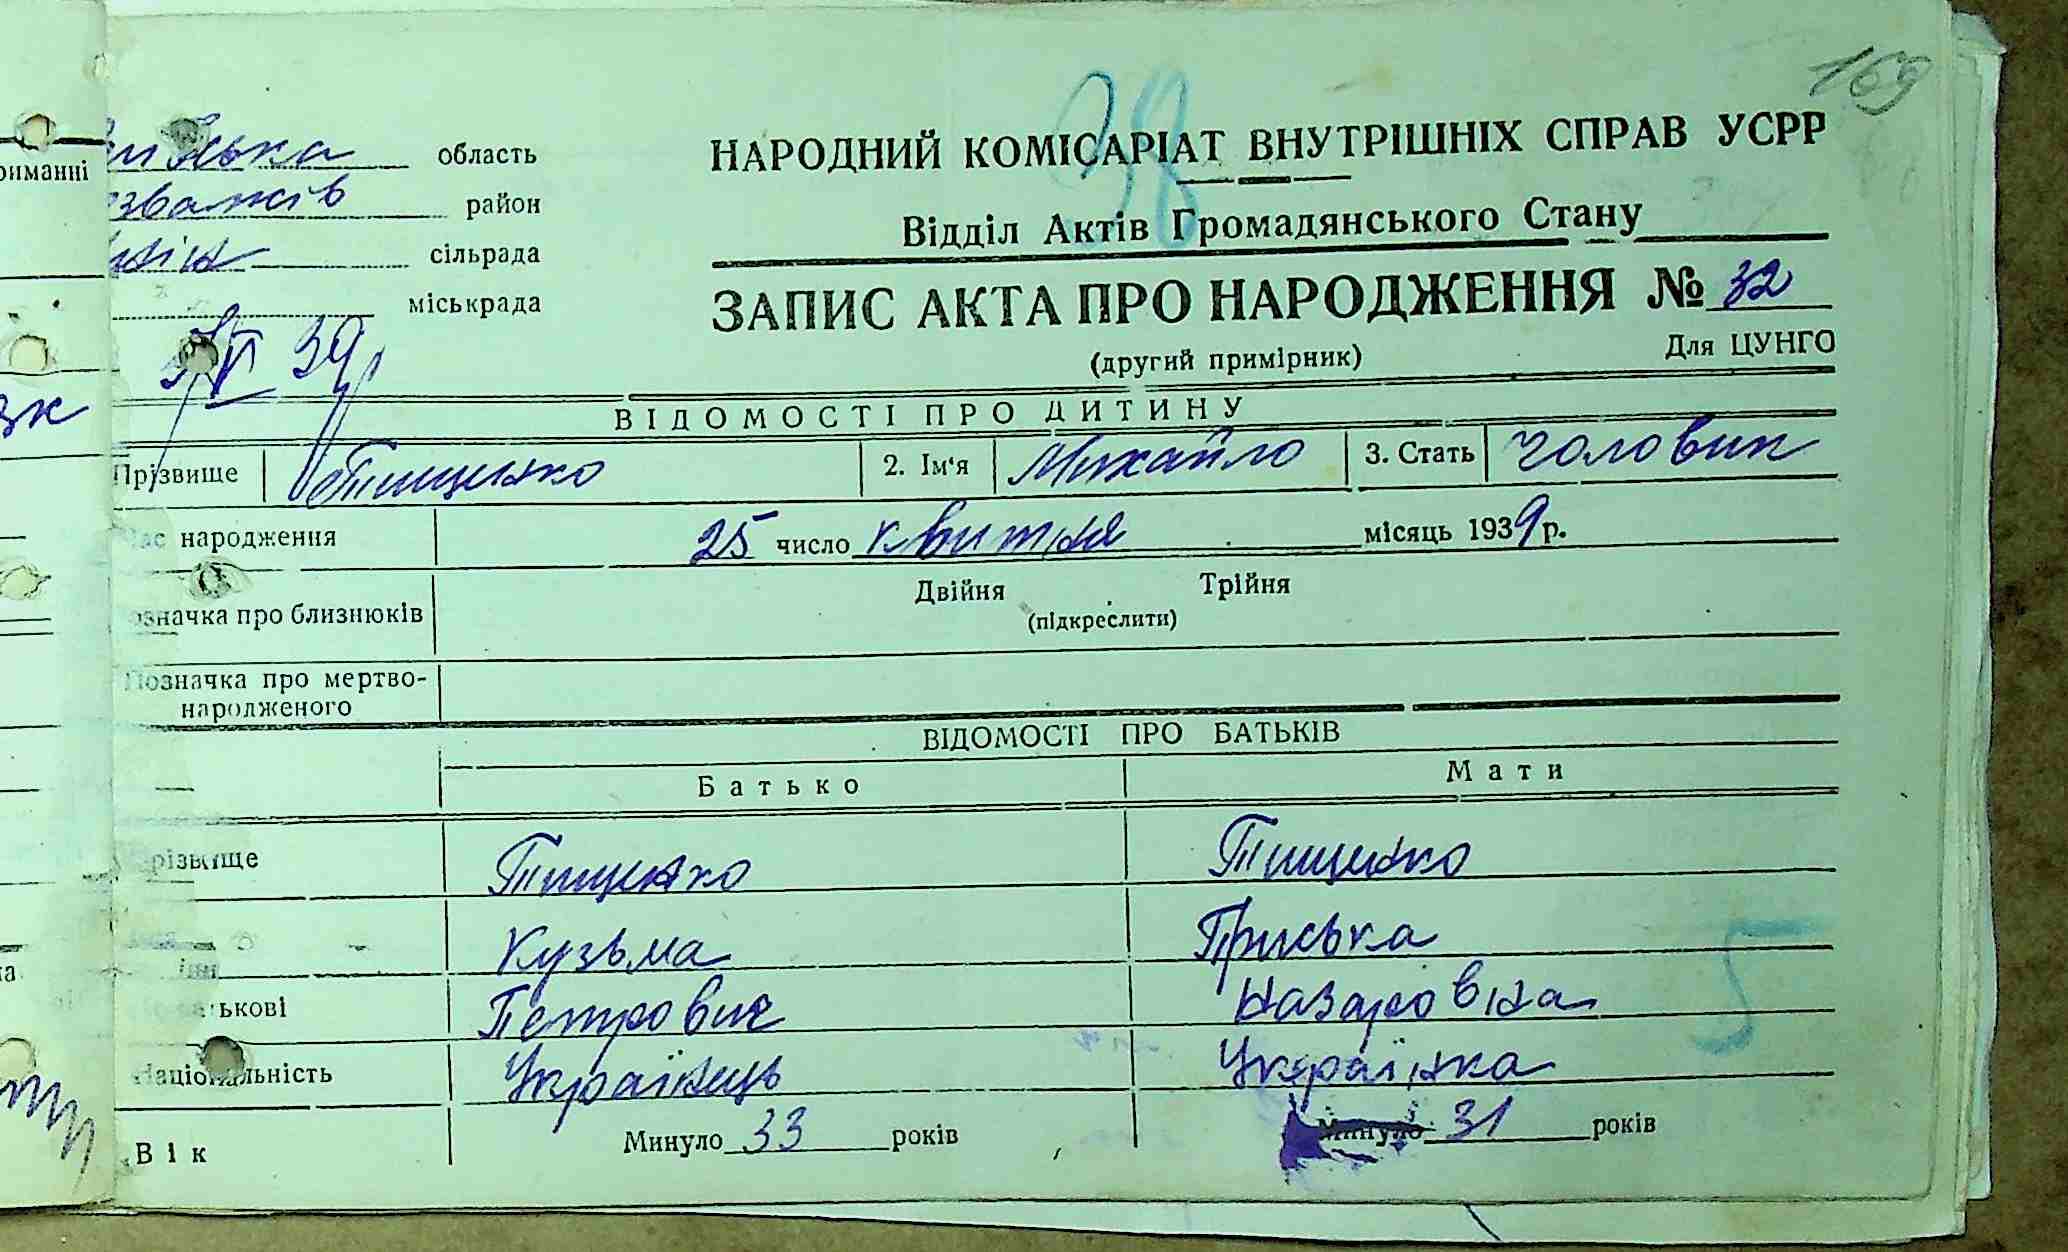 169
38
область
район
сільрада
міськрада
НАРОДНИЙ КОМІСАРІАТ ВНУТРІШНІХ СПРАВ УСРР
Відділ Актів Громадянського Стану
ЗАПИС АКТА ПРО НАРОДЖЕННЯ № 32
(другий примірник) Для ЦУНГО
ВІДОМОСТІ ПРО ДИТИНУ
Прізвище Тищенко 2. Ім‘я Михайло 3. Стать Чоловик
народження 25 число квитня місяць 1939 р.
значка про близнюків Двійня Трійня
(підкреслити)
Позначка про мертво-
народженого
ВІДОМОСТІ ПРО БАТЬКІВ
Батько Мати
різвище Тищенко Тищенко
Кузьма Приська
ькові Петрович Назаровна
Національність Українець Українка
5
Вік Минуло 33 років Минуло 31 років